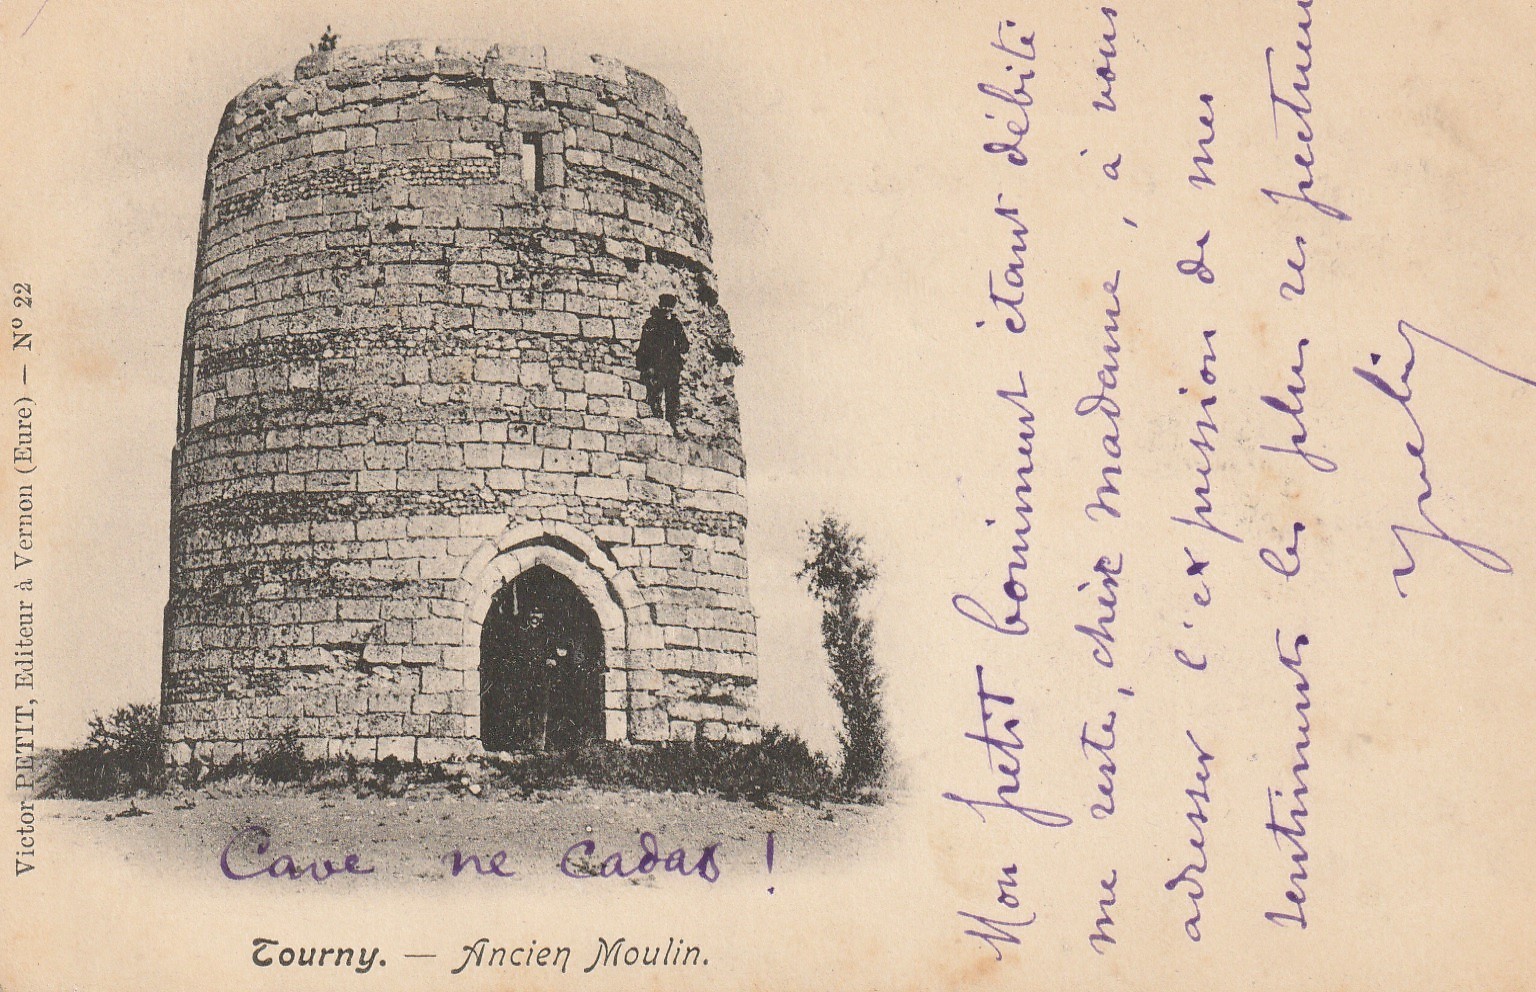 Victor PETIT, Editeur à Vernon (Eure) — Nº 22
Cave ne cadas !
Tourny. — Ancien Moulin.
Mon petit boniment étant débité
me reste, chère madame, à vous
adresser l'expression de mes
sentiments les plus respectueu